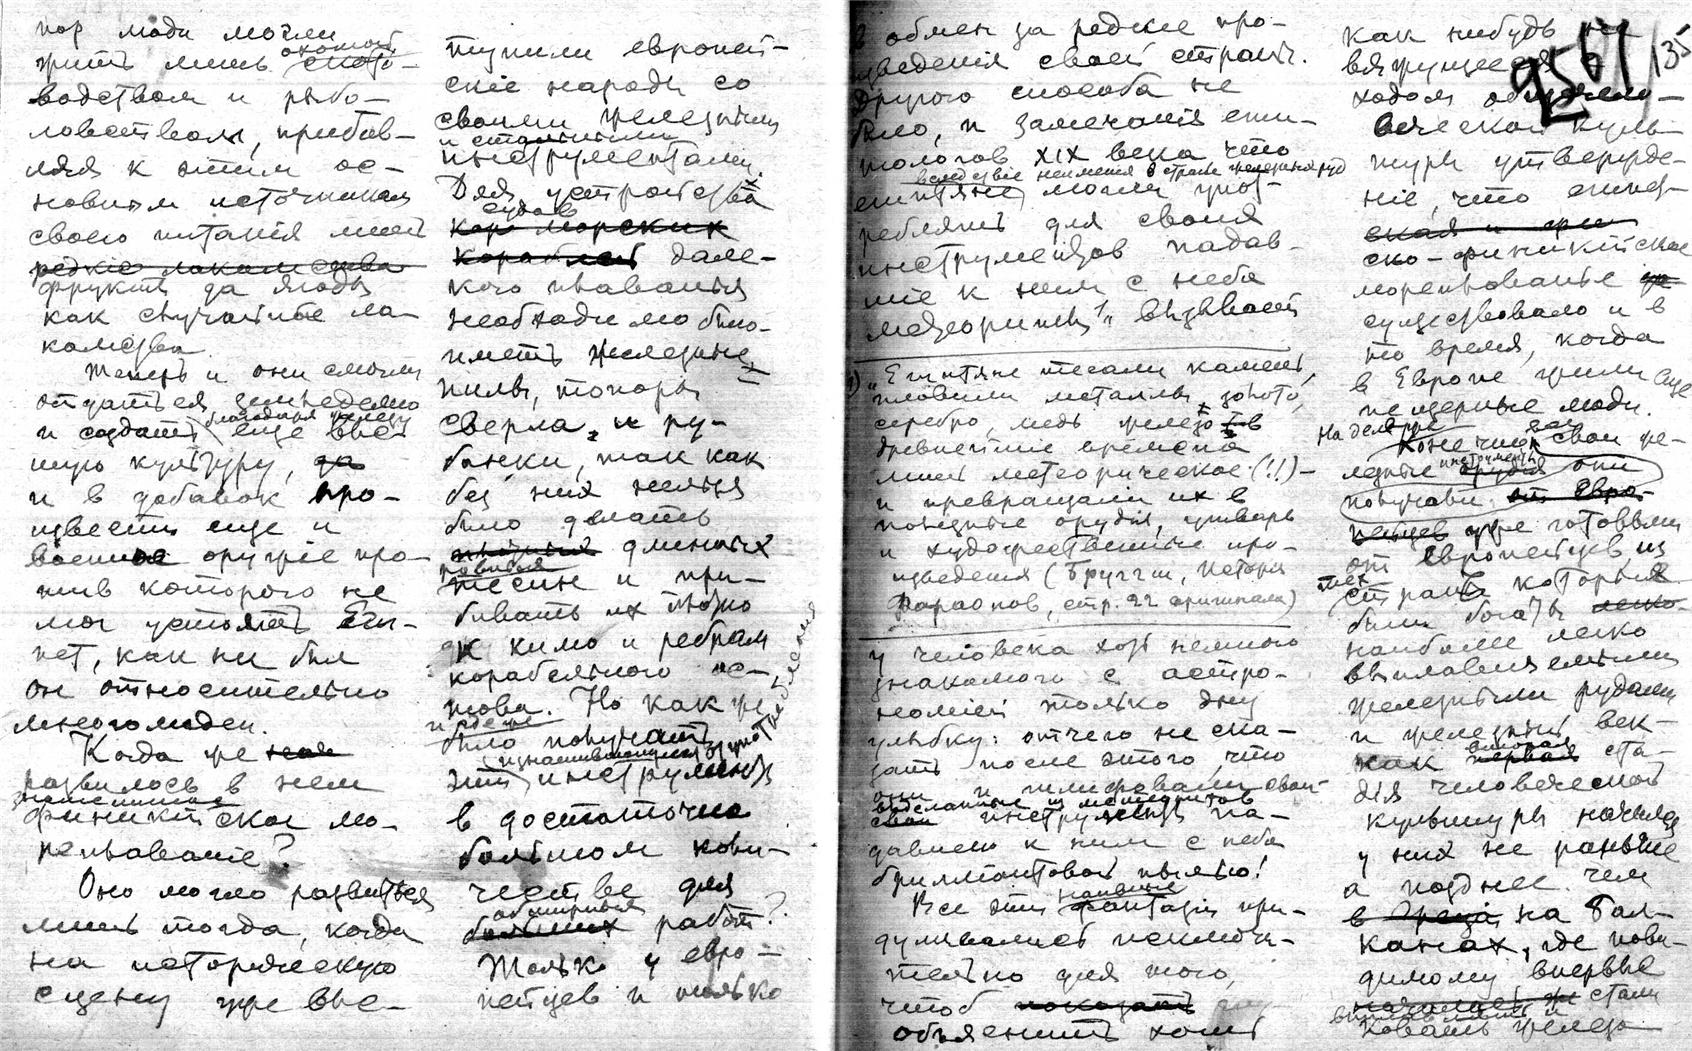 пор люди могли
жить лишь охотой
ското-
водством и рыбо-
ловством, прибав-
ляя к этим ос-
новным источникам
своего питанія лишь
редкіе лакомства
фрукты да ягоды
как случайные ла-
комства.
Теперь и они смогли
заняться земледелием
и создать благодаря железу еще выс
шую культуру, да
и в добавок про-
извести еще и
военное оружіе про-
тив которого не
мог устоять Еги-
пет, как ни был
он относительно
многолюден.
Когда же
развилось в нем
финикійское мо-
реплаваніе?
Оно могло развиться
лишь тогда, когда
на историческую
сцену уже выс-
тупили европей-
скіе народы со
своими железными
и стальными
инструментами.
Для устройства
судов
морских
кораблей дале-
кого плаванья
необходимо было
иметь железные
пилы, топоры
сверла, и ру-
банки, так как
без них нельзя
было делать
длинных
тесин и при-
бивать их плотно
к килю и ребрам
корабельного ос-
това. Но как же
и где же
было получать
эти инструменты
в достаточно
большом коли-
честве для
обширных
больших работ?
Только у евро-
пейцев и только
в обмен за редкіе про-
изведенія своей страны.
Другого способа не
было, и замечанія еги-
тологов XIX века что
вследствіе неименія в стране железных руд
египтяне могли упот-
реблять для своих
инструментов падав-
шіе к ним с неба
метеориты 1), вызывает
1) „Египтяне тесали камень,
плавили металлы, золото,
серебро, медь железо в
древнейшіе времена
лишь метеорическое (!!)—
и превращали их в
полезные орудія, утварь
и художественные про-
изведенія (Бругш, Исторія
Фараонов, стр. 22 оригинала)
у человека хоть немного
знакомого с астро-
номіей только одну
улыбку: отчего не ска-
зать после этого, что
они и шлифовали свои
выделанные из метеоритов
свои инструменты па-
давшею к ним с неба
бриллиантовой пылью!
Все эти наивные
фантазіи при-
думывались исключи-
тельно для того,
чтоб показать
объяснить хоть
как нибудь не
вяжущееся с
ходом общечело-
веческой куль-
туры утвержде-
ніе, что египет-
ская и фи
ско-финикійское
мореплаванье
существовало и в
то время, когда
в Европе жили еще
пещерные люди.
На деле же
Конечно все свои же-
лезные инструменты
орудия они
получали от Евро-
пейцев уже готовыми
от Европейцев из
тех
стран которые
были богаты легко-
наиболее легко
выплавляемыми
железными рудами
и железный век-
как вторая
первая ста-
дія человеческой
культуры начался
у них не раньше
а позднее чем
в Греціи на Бал-
канах, где пови-
димому впервые
начали же стали
выплавлять и
ковать железо
95
135